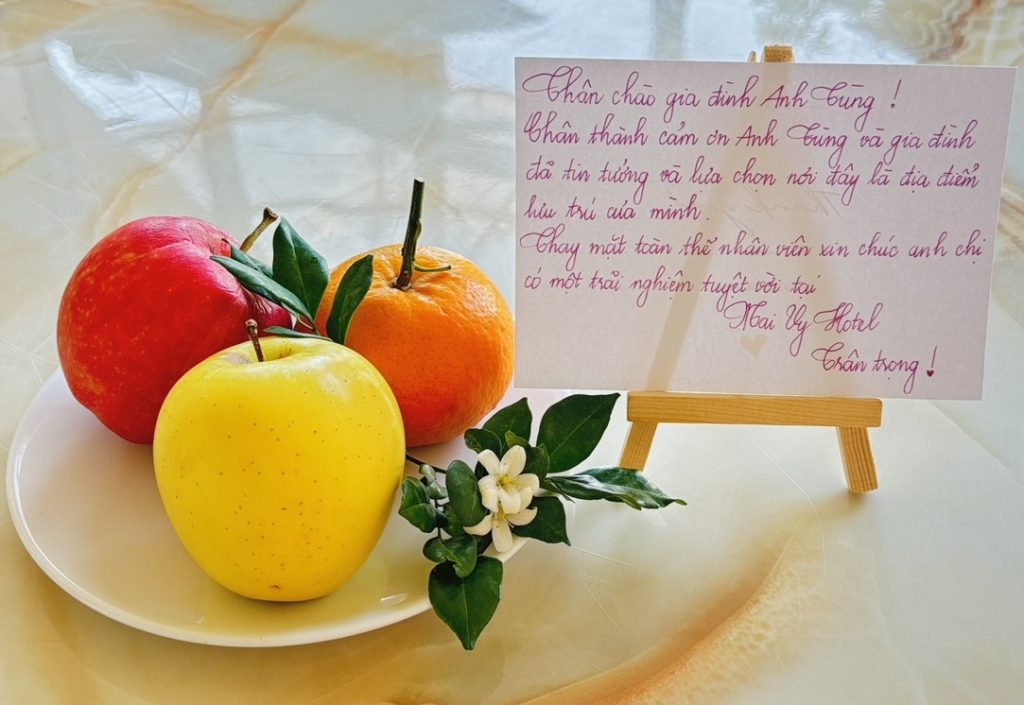 Chân chào gia đình Anh Tùng !
Chân thành cảm ơn Anh Tùng và gia đình
đã tin tưởng và lựa chọn nơi đây là địa điểm
lưu trú của mình.
Thay mặt toàn thể nhân viên xin chúc anh chi
có một trải nghiệm tuyệt vời tại
Mai Vy Hotel
Trân trọng !